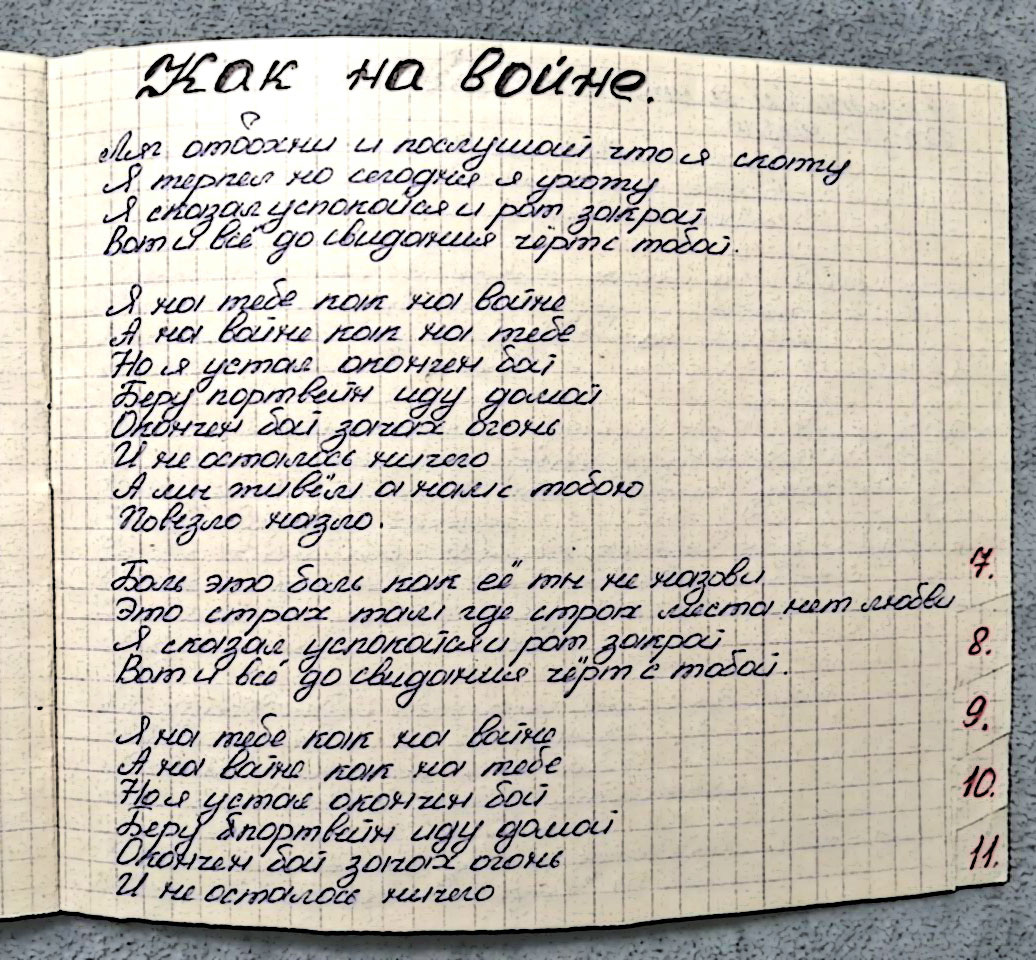 Как на войне.
Ляг отдохни и послушай что я скажу
Я терпел но сегодня я ухожу
Я сказал успокойся и рот закрой
Вот и всё до свидания чёрт с тобой.
Я на тебе как на войне
А на войне как на тебе
Но я устал окончен бой
Беру портвейн иду домой
Окончен бой зачах огонь
И не осталось ничего
А мы живём а нам с тобою
Повезло назло.
Боль это боль как её ты не назови
Это страх там где страх места нет любви
Я сказал успокойся и рот закрой
Вот и всё до свидания чёрт с тобой.
Я на тебе как на войне
А на войне как на тебе
Но я устал окончен бой
Беру портвейн иду домой
Окончен бой зачах огонь
И не осталось ничего
7.
8.
9.
10.
11.